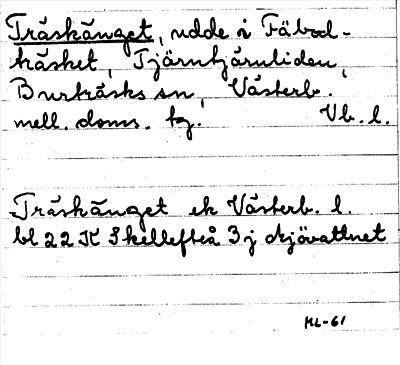 Träskänget, udde i Fäbod-
träsket, Tjärntjärnliden,
Burträsks sn, Västerb.
mell. doms. tg. Vb. l.
Träskänget ek Västerb. l.
bl 22 K Skellefteå 3j Sjövattnet
ML-61